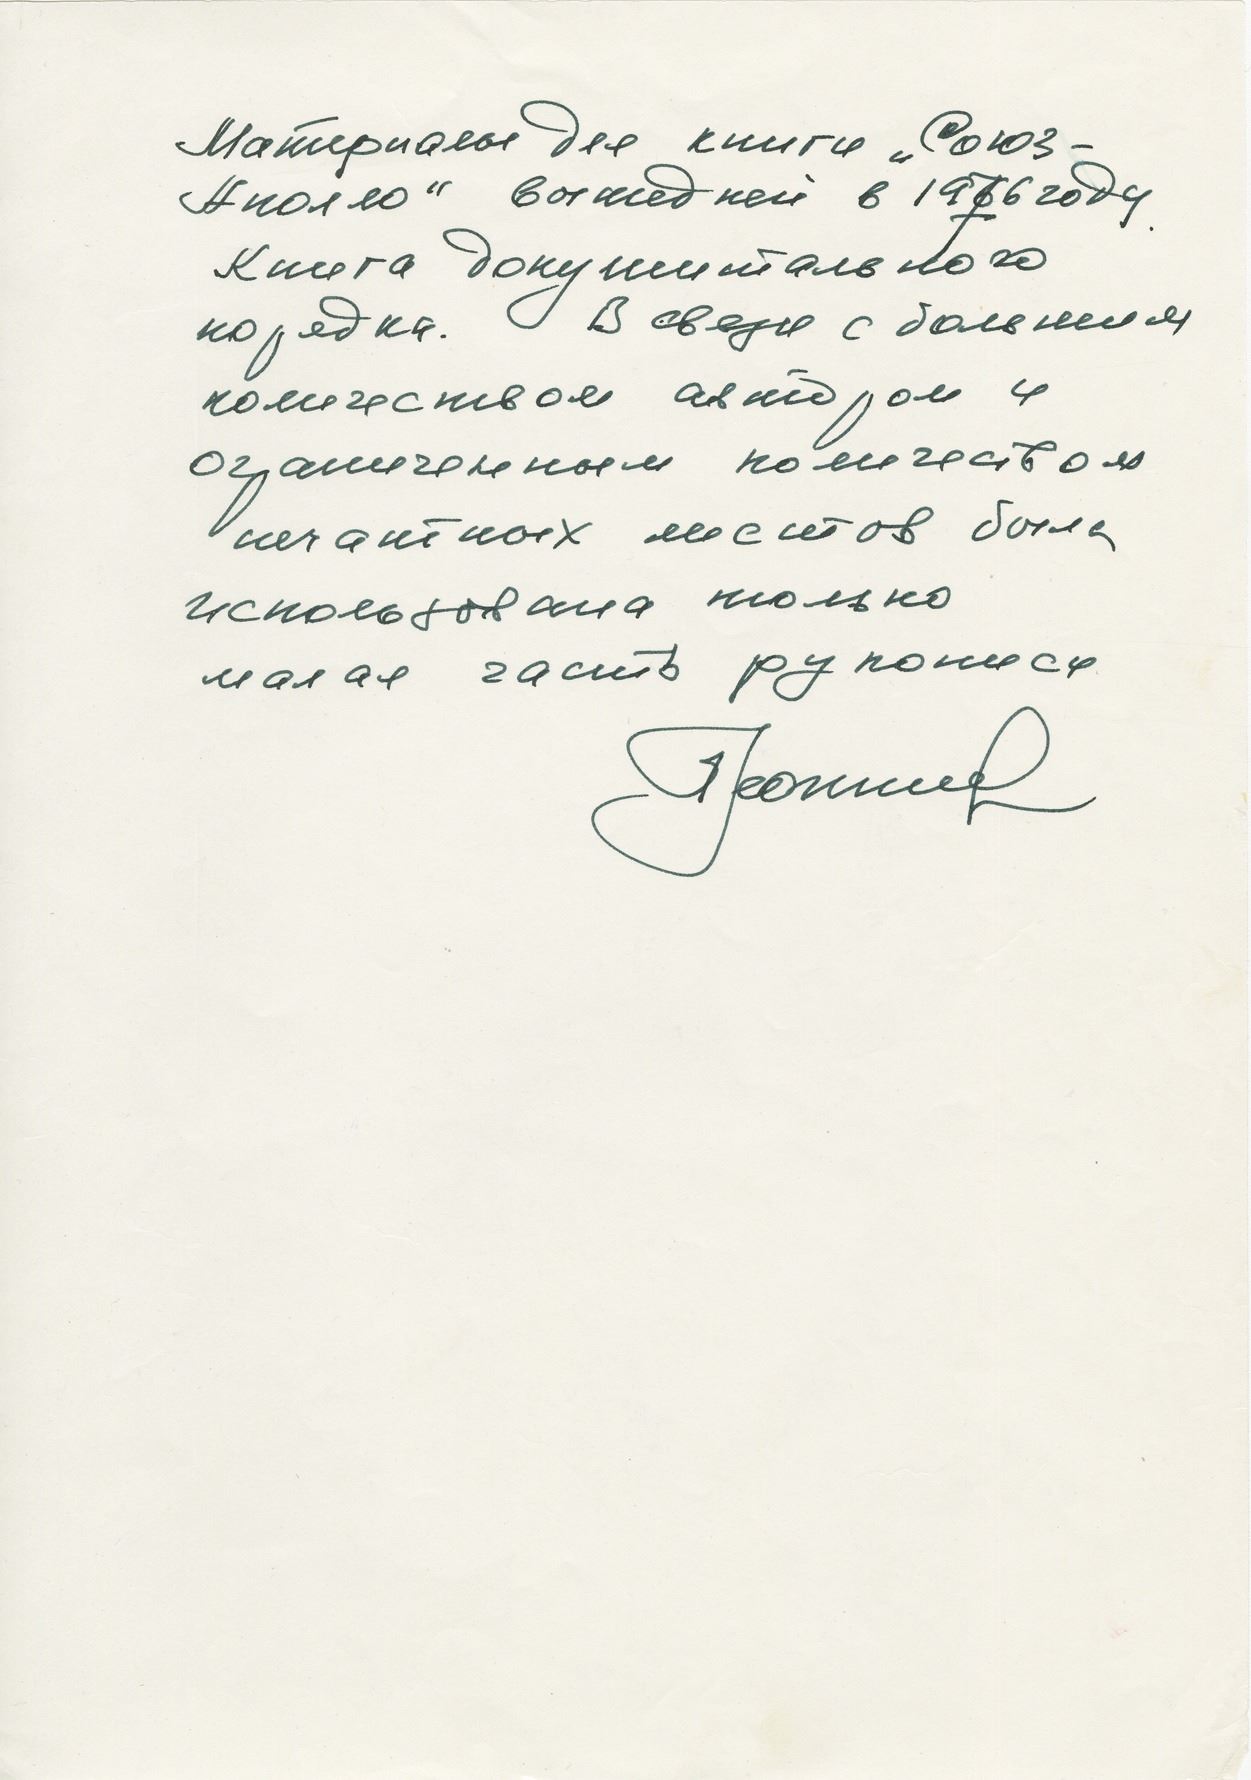 Материалы для книги „Союз-
Аполло" вышедшей в 1976 году.
Книга документального
порядка. В связи с большим
количеством авторов и
ограниченным количеством
печатных листов была
использована только
малая часть рукописи